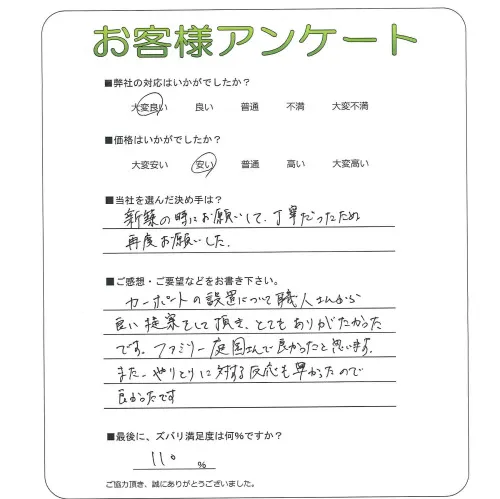 お客様アンケート
■弊社の対応はいかがでしたか？
大変良い 良い 普通 不満 大変不満
■価格はいかがでしたか？
大変安い 安い 普通 高い 大変高い
■当社を選んだ決め手は？
新築の時にお願いして、丁寧だったため
再度お願いした.
■ご感想・ご要望などをお書き下さい。
カーポートの設置について職人さんから
良い提案をして頂き、とてもありがたかった
です。ファミリー庭園さんで良かったと思います.
また、やりとりに対する反応も早かったので
良かったです
■最後に、ズバリ満足度は何%ですか？
110 %
ご協力頂き、誠にありがとうございました。